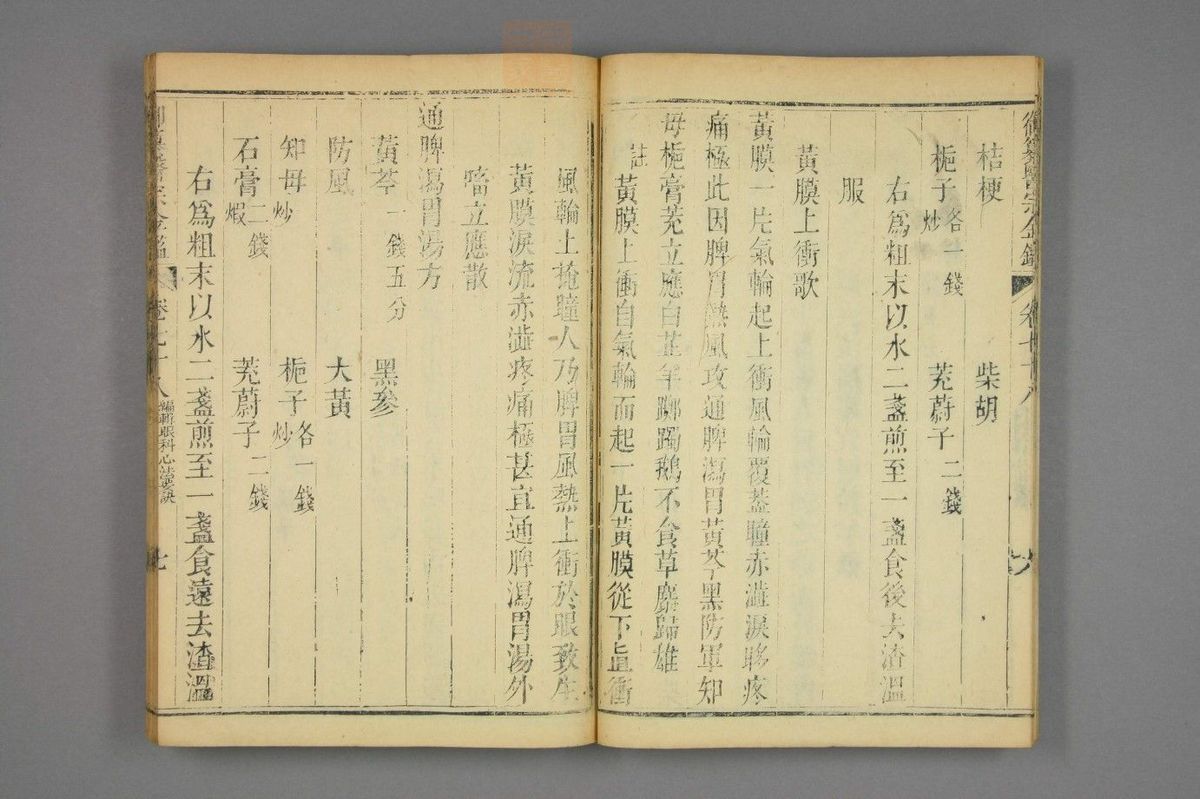 御纂醫宗金鑑 卷七十八 六
桔梗 柴胡
梔子炒各一錢 茺蔚子二錢
右爲粗末以水二盞煎至一盞食後去渣溫
服
黃膜上衝歌
黃膜一片氣輪起上衝風輪覆蓋瞳赤澁淚眵疼
痛極此因脾胃熱風攻通脾瀉胃黃芩黑防軍知
母梔膏茺立應白芷羊躑躅鵝不食草麝歸雄
註黃膜上衝自氣輪而起一片黃膜從下直衝
風輪上掩瞳人乃脾胃風熱上衝於眼致生
黃膜淚流赤澁疼痛極甚宜通脾瀉胃湯外
㗜立應散
通脾瀉胃湯方
黃芩一錢五分 黑參
防風 大黃
知母炒 梔子炒各一錢
石膏煅二錢 茺蔚子二錢
右爲粗末以水二盞煎至一盞食遠去渣溫
醫宗金鑑 卷七十八 編輯眼科心法要訣 七